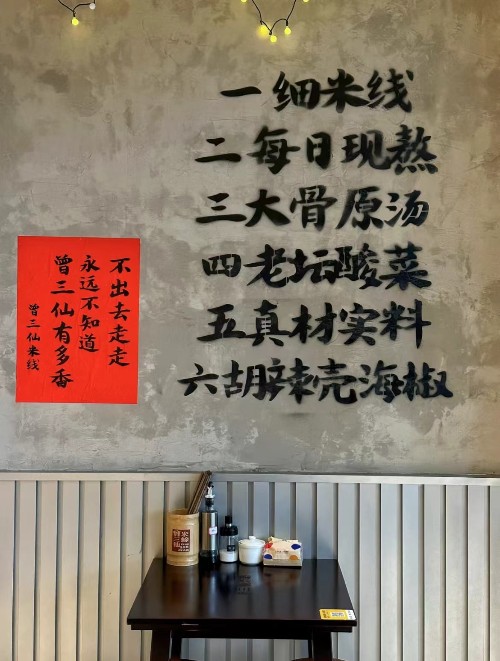 一细米线
二每日现熬
三大骨原汤
四老坛酸菜
五真材实料
六胡辣壳海椒
不出去走走
永远不知道
曾三仙有多香
曾三仙米线